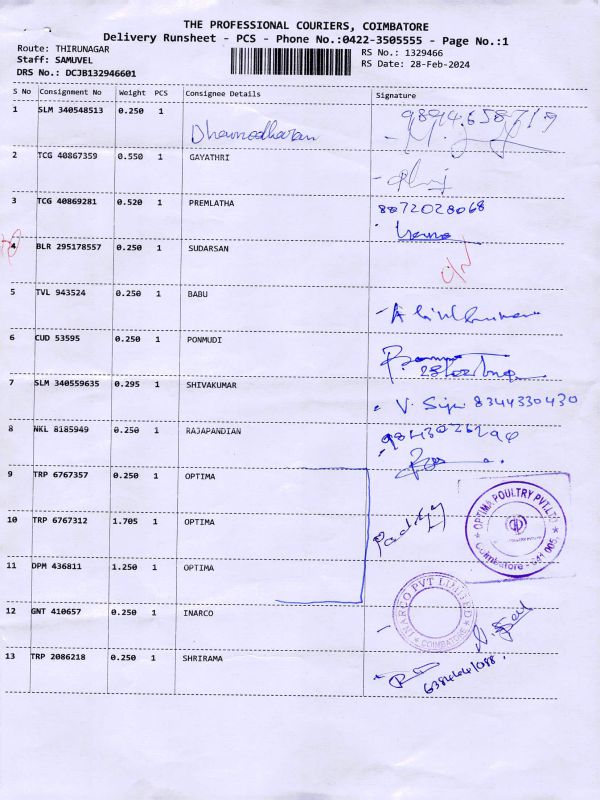 THE PROFESSIONAL COURIERS, COIMBATORE
Delivery Runsheet - PCS - Phone No.:0422-3505555 - Page No.:1
Route: THIRUNAGAR
RS No.: 1329466
Staff: SAMUVEL
RS Date: 28-Feb-2024
DRS No.: DCJB132946601
S No Consignment No Weight PCS Consignee Details Signature
1 SLM 340548513 0.250 1
Dhamodharan
2 TCG 40867359 0.550 1 GAYATHRI
3 TCG 40869281 0.520 1 PREMLATHA 8072028068
4 BLR 295178557 0.250 1 SUDARSAN
5 TVL 943524 0.250 1 BABU
6 CUD 53595 0.250 1 PONMUDI
7 SLM 340559635 0.295 1 SHIVAKUMAR
8344330430
8 NKL 8185949 0.250 1 RAJAPANDIAN
9 TRP 6767357 0.250 1 OPTIMA
10 TRP 6767312 1.705 1 OPTIMA
OPTIMA POULTRY PVT.LTD
Coimbatore - 641 005.
11 DPM 436811 1.250 1 OPTIMA
12 GNT 410657 0.250 1 INARCO
INARCO PVT LIMITED
COIMBATORE
13 TRP 2086218 0.250 1 SHRIRAMA